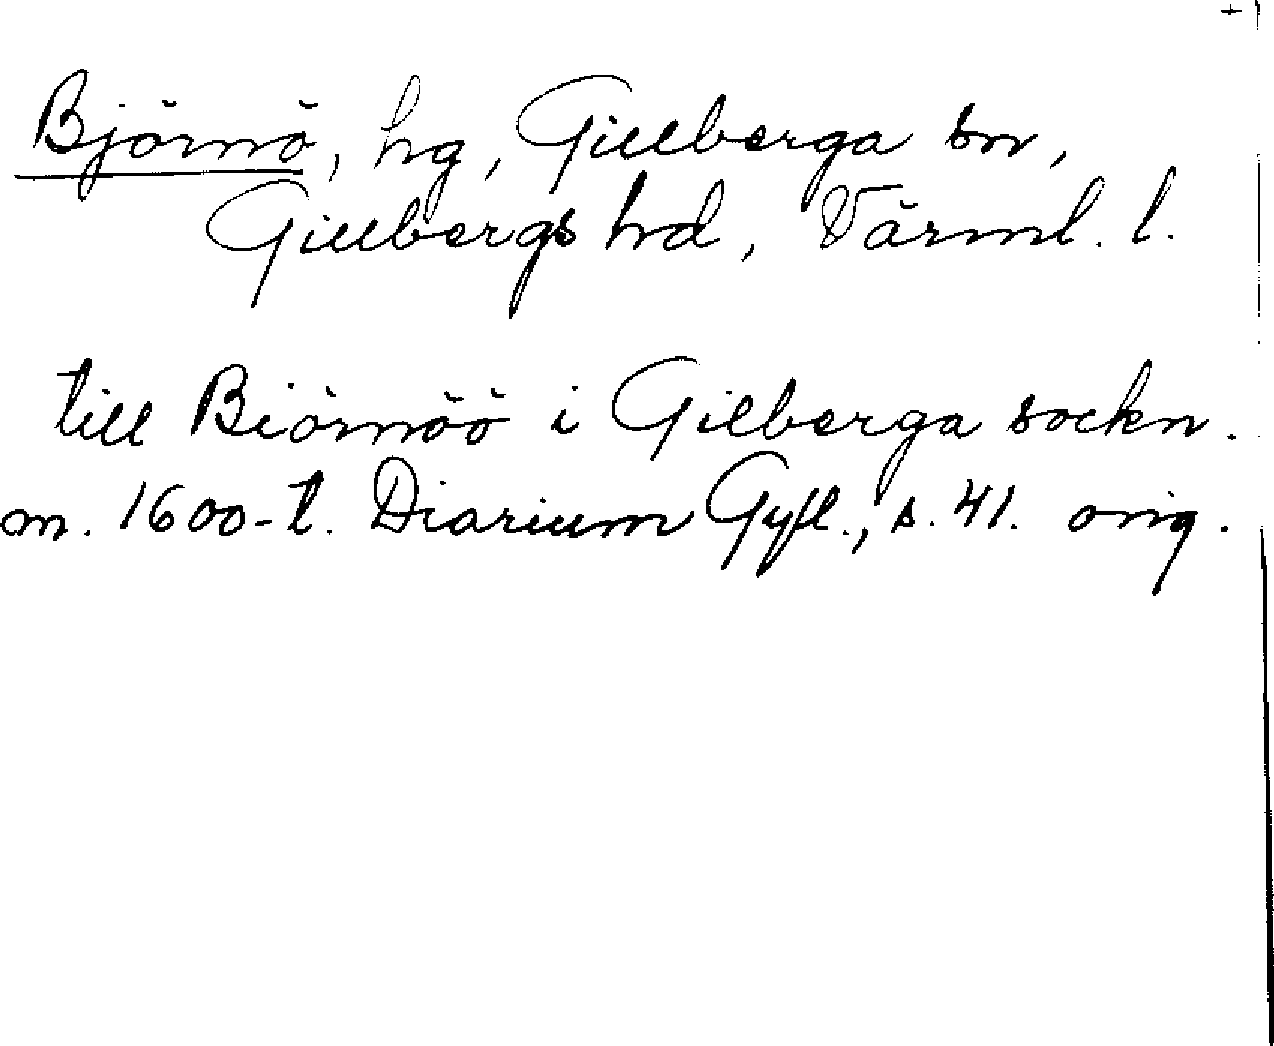 Björnö, hg, Gillberga sn,
Gillbergs hd, Värml. l.
till Biörnöö i Gilberga sockn.
m. 1600-t. Diarium Gyll., s. 41. orig.